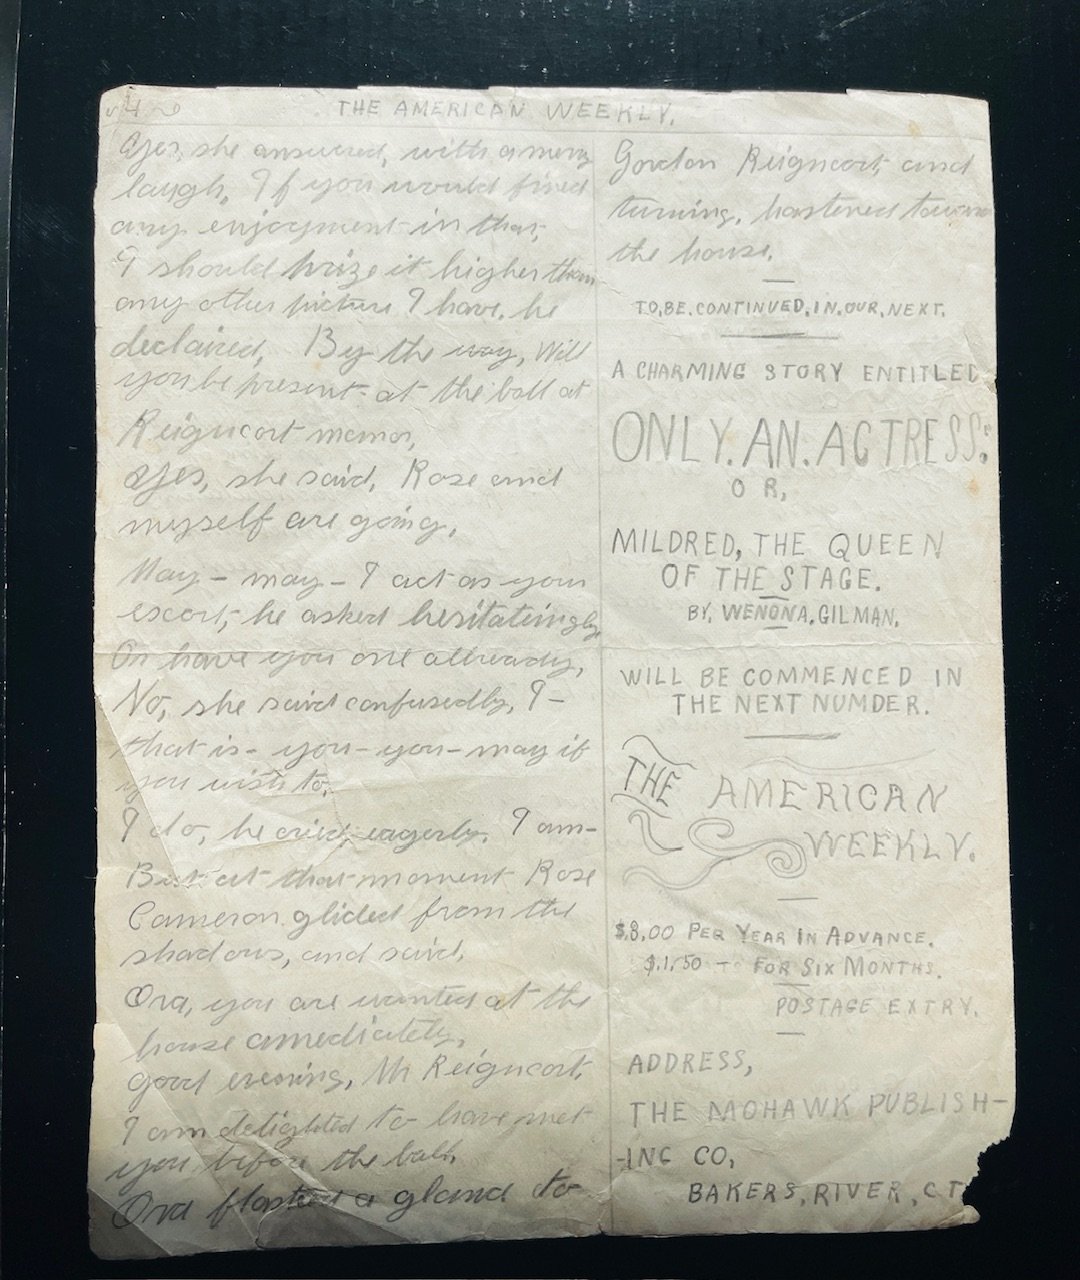 4
THE AMERICAN WEEKLY.
Yes, she answered, with a merry
laugh, If you would fined
any enjoyment in that,
I should prize it higher than
any other picture I have, he
declaired, By the way, Will
you be present at the ball at
Reigncort menor,
Yes, she said, Rose and
myself are going,
May - may - I act as your
escort, he asked hesitateingly
Or have you one allready,
No, she said confusedly, I -
that is - you - you - may if
you wish to,
I do, he cried, eagerly, I am -
But at that moment Rose
Cameron glided from the
shadows, and said,
Ora, you are wanted at the
house amediately,
good evening, Mr Reigncort,
I am delighted to have met
you before the ball,
Ora flashed a gland to
Gordon Reigncort, and
turning, hastened toward
the house.
TO.BE.CONTINUED.IN.OUR.NEXT.
A CHARMING STORY ENTITLED
ONLY. AN. ACTRESS;
OR,
MILDRED, THE QUEEN
OF THE STAGE.
BY, WENONA. GILMAN.
WILL BE COMMENCED IN
THE NEXT NUMDER.
THE AMERICAN
WEEKLY.
$.3,00 PER YEAR IN ADVANCE.
$.1,50 - FOR SIX MONTHS.
POSTAGE EXTRY.
ADDRESS,
THE MOHAWK PUBLISH-
-ING CO,
BAKERS, RIVER, CT